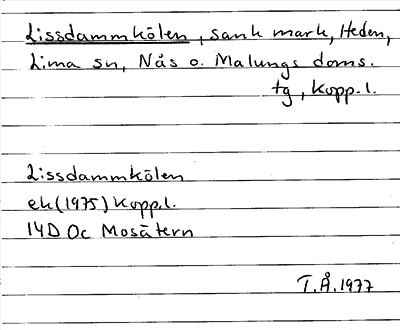 Lissdammkölen, sank mark, Heden,
Lima sn, Nås o. Malungs doms.
tg, Kopp.l.
Lissdammkölen
ek(1975) Kopp.l.
14D Oc Mosätern
T.Å.1977